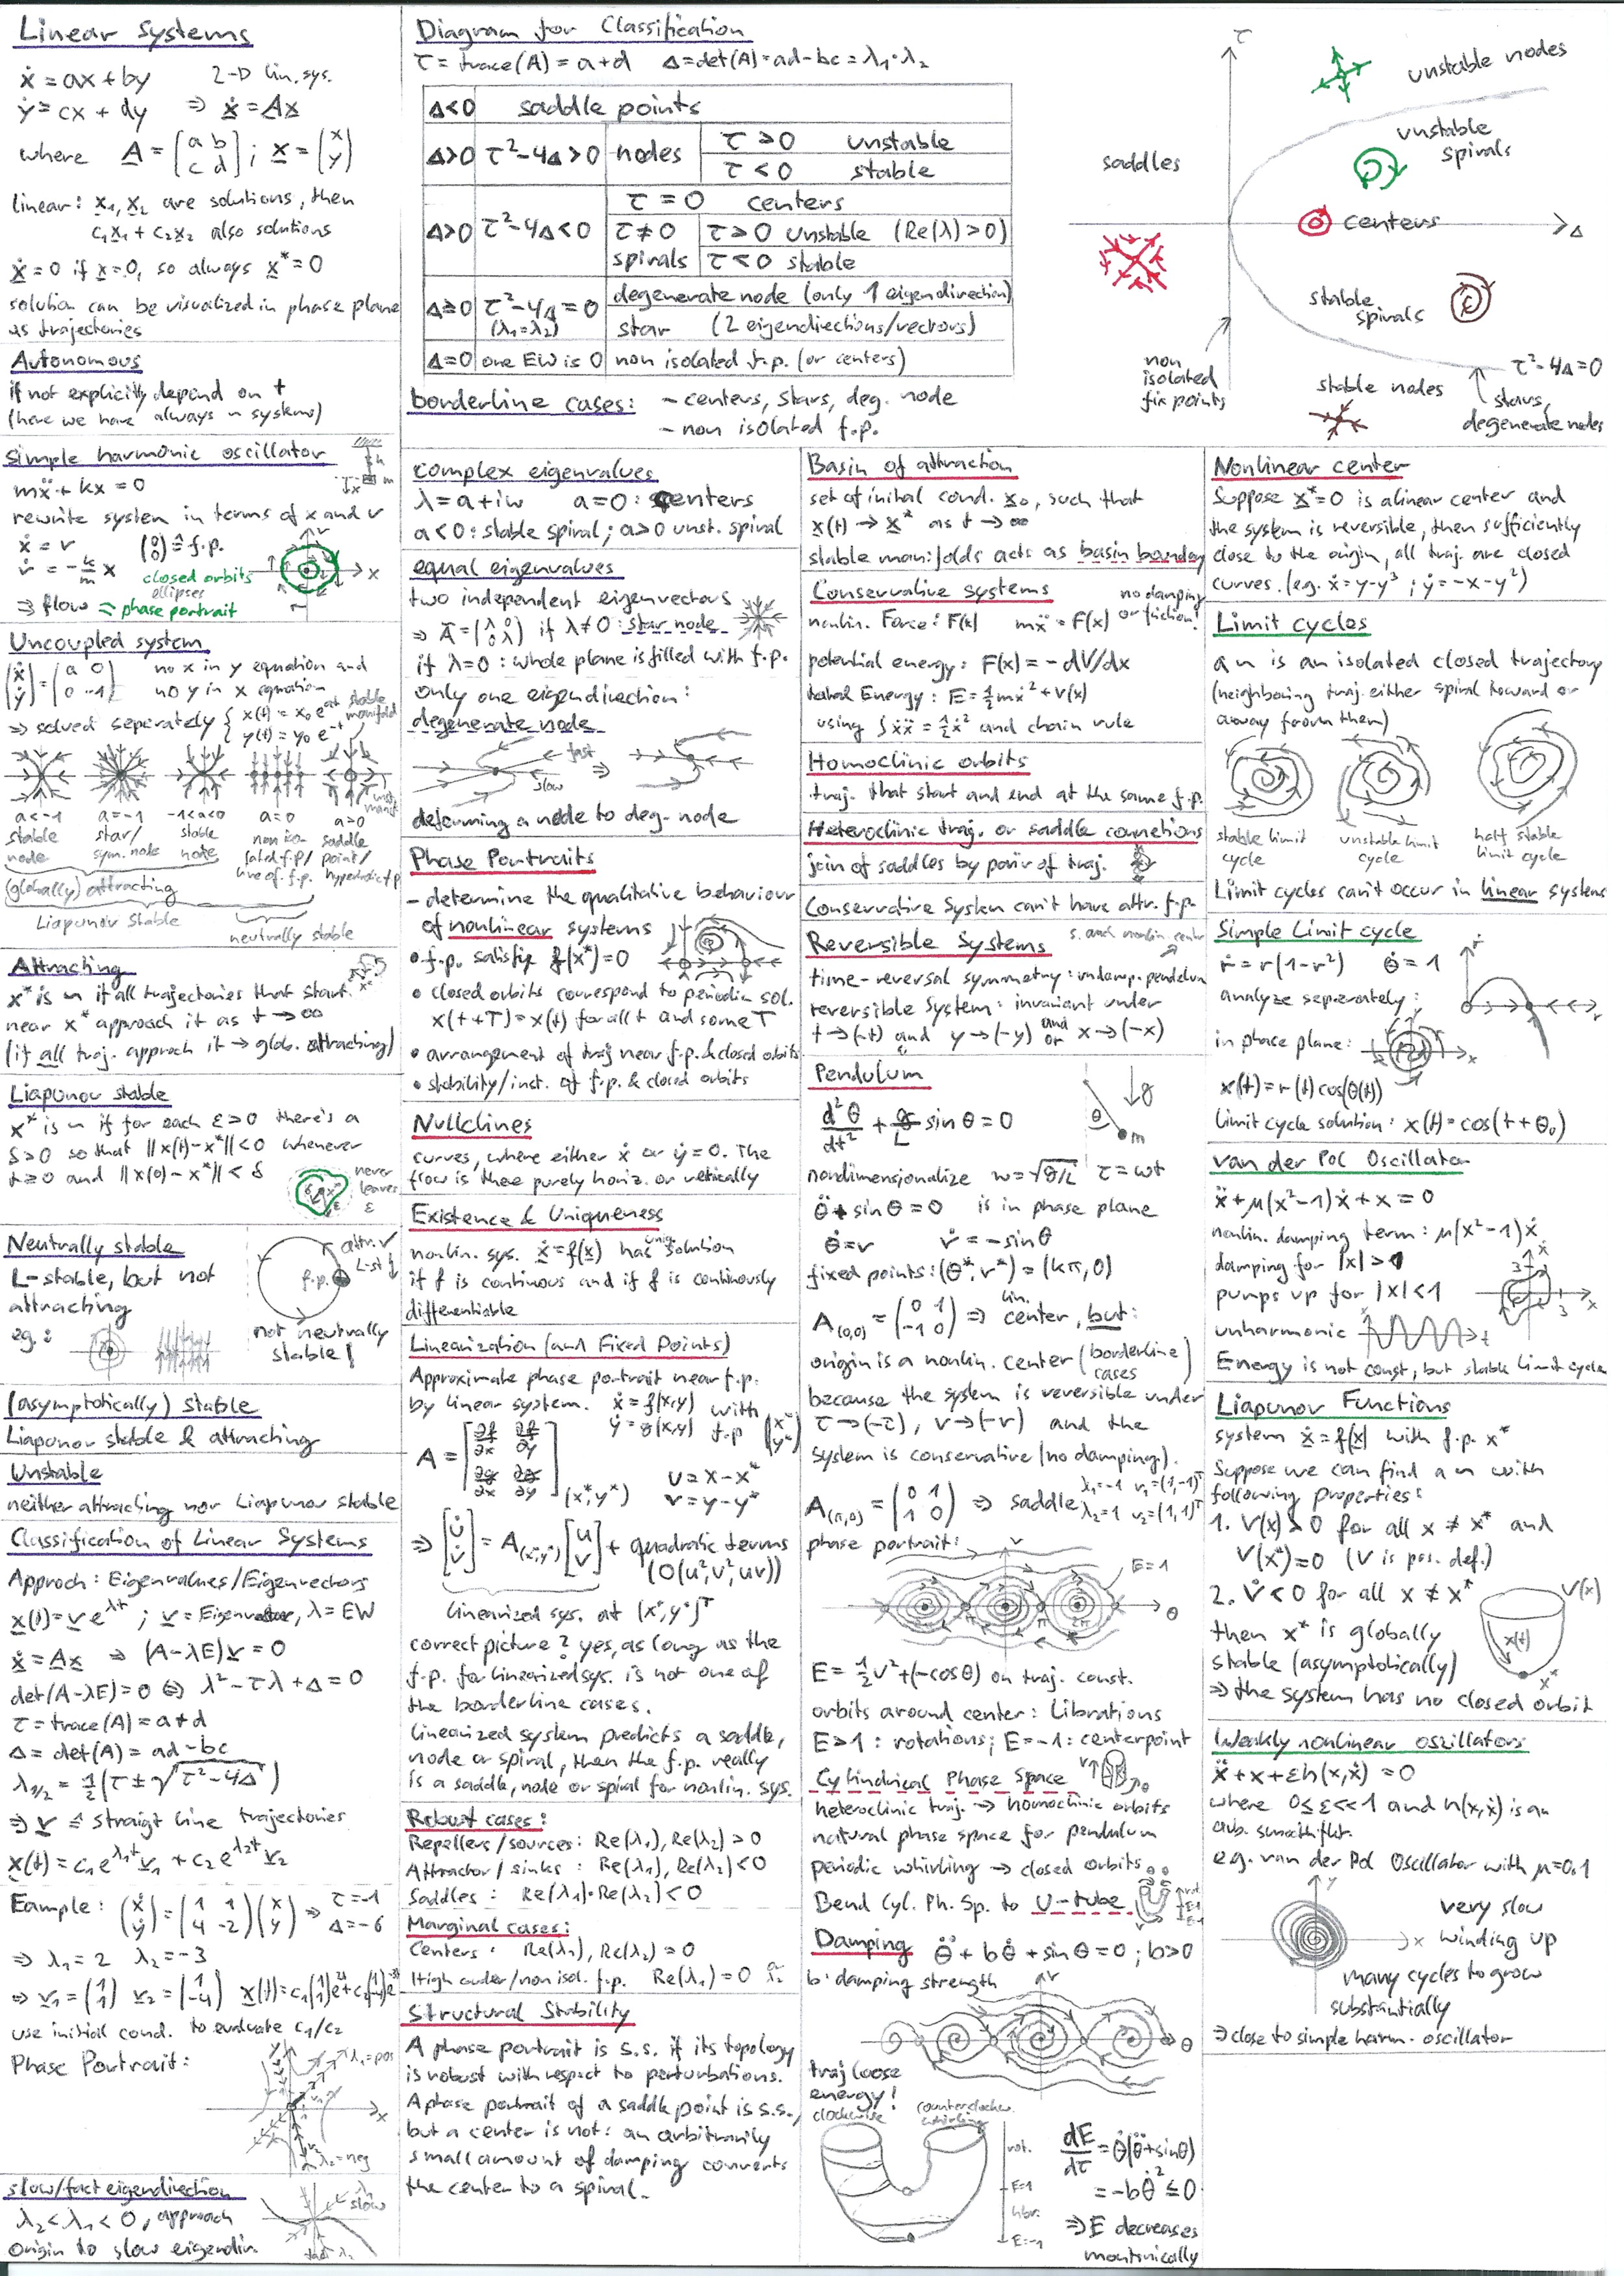 Linear Systems
ẋ = ax + by 2-D lin. sys.
ẏ = cx + dy ⇒ ẋ = Ax
where A = (a b; c d) ; x = (x y)
linear: x₁, x₂ are solutions, then
c₁x₁ + c₂x₂ also solutions
ẋ = 0 if x = 0, so always x* = 0
solution can be visualized in phase plane
as trajectories
Autonomous
if not explicitly depend on t
(here we have always ~ systems)
Simple harmonic oscillator
mẍ + kx = 0
rewrite system in terms of x and v
ẋ = v (0 0) ≙ f.p.
v̇ = -k/m x closed orbits
ellipses
⇒ flow = phase portrait
Uncoupled system
(ẋ ẏ) = (a 0; 0 -1) no x in y equation and
no y in x equation
⇒ solved seperately { x(t) = x₀e^at
y(t) = y₀e^-t
stable manifold
a<-1 a=-1 -1<a<0 a=0 a>0
stable node
star/ sym. node
stable node
non isolated f.p./ line of f.p.
saddle point/ hyperbolic f.p.
(globally) attracting
Liapunov stable
neutrally stable
Attracting
x* is ~ if all trajectories that start
near x* approach it as t → ∞
(if all traj. approach it → glob. attracting)
Liapunov stable
x* is ~ if for each ε>0 there's a
δ>0 so that ||x(t)-x*||<0 whenever
t≥0 and ||x(0)-x*||<δ
never leaves ε
Neutrally stable
L-stable, but not
attracting
eg.:
f.p.
attr. ✓
L-st
not neutrally
stable!
(asymptotically) stable
Liapunov stable & attracting
Unstable
neither attracting nor Liapunov stable
Classification of Linear Systems
Approch: Eigenvalues/Eigenvectors
x(t) = v e^λt ; v = Eigenvektor, λ = EW
ẋ = Ax ⇒ (A-λE)v = 0
det(A-λE)=0 ⇔ λ² - τλ + Δ = 0
τ = trace(A) = a+d
Δ = det(A) = ad-bc
λ1/2 = ½(τ ± √(τ²-4Δ))
⇒ v ≙ straigt line trajectories
x(t) = c₁e^λ₁t v₁ + c₂e^λ₂t v₂
Example: (ẋ ẏ) = (1 1; 4 -2)(x y) ⇒ τ=-1
Δ=-6
⇒ λ₁ = 2 λ₂ = -3
⇒ v₁ = (1 1) v₂ = (1 -4) x(t)=c₁(1 1)e^2t+c₂(1 -4)e^-3t
use initial cond. to evaluate c₁/c₂
Phase Portrait:
λ₁=pos
λ₂=neg
slow/fact eigendirection
λ₂<λ₁<0, approach
origin to slow eigendir.
slow
fast λ₂
Diagram for Classification
τ = trace(A) = a+d Δ=det(A)=ad-bc=λ₁·λ₂
Δ<0 saddle points
Δ>0 τ²-4Δ>0 nodes τ>0 unstable
τ<0 stable
Δ>0 τ²-4Δ<0 τ=0 centers
τ≠0 spirals τ>0 unstable (Re(λ)>0)
τ<0 stable
Δ>0 τ²-4Δ=0 (λ₁=λ₂) degenerate node (only 1 eigendirection)
star (2 eigendirections/vectors)
Δ=0 one EW is 0 non isolated f.p. (or centers)
borderline cases: - centers, stars, deg. node
- non isolated f.p.
τ
unstable nodes
unstable spirals
saddles
centers
Δ
stable spirals
non isolated fix points
stable nodes
τ²-4Δ=0
stars, degenerate nodes
complex eigenvalues
λ = a+iw a=0: centers
a<0: stable spiral; a>0 unst. spiral
equal eigenvalues
two independent eigenvectors
⇒ A = (λ 0; 0 λ) if λ≠0: star node
if λ=0: whole plane is filled with f.p.
only one eigendirection:
degenerate node
fast
slow
deforming a node to deg. node
Phase Portraits
- determine the qualitative behaviour
of nonlinear systems
• f.p. satisfy f(x*)=0
• closed orbits correspond to periodic sol.
x(t+T)=x(t) for all t and some T
• arrangement of traj near f.p. & closed orbits
• stability/inst. of f.p. & closed orbits
Nullclines
curves, where either ẋ or ẏ=0. The
flow is there purely horiz. or vertically
Existence & Uniqueness
nonlin. sys. ẋ=f(x) has uniq. solution
if f is continous and if f is continously
differentiable
Linearization (and Fixed Points)
Approximate phase portrait near f.p.
by linear system. ẋ=f(x,y) with
ẏ=g(x,y) f.p (x* y*)
A = [∂f/∂x ∂f/∂y; ∂g/∂x ∂g/∂y](x*,y*) u=x-x*
v=y-y*
⇒ [u̇ v̇] = A(x*,y*) [u v] + quadratic terms
(O(u²,v²,uv))
linearized sys. at (x*,y*)ᵀ
correct picture? yes, as long as the
f.p. for linearized sys. is not one of
the borderline cases.
linearized system predicts a saddle,
node or spiral, then the f.p. really
is a saddle, node or spiral for nonlin. sys.
Robust cases:
Repellers/sources: Re(λ₁),Re(λ₂)>0
Attractor/sinks: Re(λ₁),Re(λ₂)<0
Saddles: Re(λ₁)·Re(λ₂)<0
Marginal cases:
Centers: Re(λ₁),Re(λ₂)=0
High order/non isol. f.p. Re(λ₁)=0
Structural Stability
A phase portrait is s.s. if its topology
is robust with respect to perturbations.
A phase portrait of a saddle point is s.s.,
but a center is not: an arbitrarily
small amount of damping converts
the center to a spiral.
Basin of attraction
set of initial cond. x₀, such that
x(t) → x* as t → ∞
stable manifolds acts as basin boundary
Conservative systems
no damping or friction!
nonlin. Force: F(x) mẍ = F(x)
potential energy: F(x) = -dV/dx
total Energy: E=½mẋ²+V(x)
using ∫ẋẍ=½ẋ² and chain rule
Homoclinic orbits
traj. that start and end at the same f.p.
Heteroclinic traj. or saddle connetions
join of saddles by pair of traj.
Conservative System can't have attr. f.p.
Reversible Systems
time-reversal symmetry: undamp. pendulum
reversible System: invariant under
t→(-t) and y→(-y) and or x→(-x)
Pendulum
d²θ/dt² + g/L sin θ = 0
g
θ
m
nondimensionalize w=√g/L τ=wt
θ̈ + sin θ = 0 is in phase plane
θ̇=v v̇=-sin θ
fixed points: (θ*,v*)=(kπ,0)
A(0,0) = (0 1; -1 0) ⇒ lin. center, but:
origin is a nonlin. center (borderline cases)
because the system is reversible under
τ→(-τ), v→(-v) and the
system is conservative (no damping).
A(π,0) = (0 1; 1 0) ⇒ saddle λ₁=-1 v₁=(1,-1)ᵀ
λ₂=1 v₂=(1,1)ᵀ
phase portrait:
v
E=1
θ
E=½v²+(-cos θ) on traj. const.
orbits around center: Librations
E>1: rotations; E=-1: centerpoint
Cylindrical Phase Space
heteroclinic traj. → homoclinic orbits
natural phase space for pendulum
periodic whirling → closed orbits
Bend Cyl. Ph. Sp. to U-tube
Damping θ̈ + bθ̇ + sin θ = 0 ; b>0
b: damping strength
v
θ
traj loose
energy!
clockwise
counterclockw. whirling
rot.
E=1
libr.
E=-1
dE/dτ = θ̇(θ̈+sin θ)
= -bθ̇² ≤ 0
⇒ E decreases
montinically
Nonlinear center
Suppose x*=0 is a linear center and
the system is reversible, then sufficiently
close to the origin, all traj. are closed
curves. (e.g. ẋ=y-y³ ; ẏ=-x-y²)
Limit cycles
a ~ is an isolated closed trajectory
(neighboring traj. either spiral toward or
away from them)
stable limit cycle
unstable limit cycle
half stable limit cycle
Limit cycles can't occur in linear systems
Simple Limit cycle
ṙ=r(1-r²) θ̇=1
analyze seperately:
in phase plane:
x(t)=r(t)cos(θ(t))
limit cycle solution: x(t)=cos(t+θ₀)
van der Pol Oscillator
ẍ+μ(x²-1)ẋ+x=0
nonlin. damping term: μ(x²-1)ẋ
damping for |x|>1
pumps up for |x|<1
unharmonic
Energy is not const, but stable limit cycle
Liapunov Functions
system ẋ=f(x) with f.p. x*
Suppose we can find a ~ with
following properties:
1. V(x)>0 for all x≠x* and
V(x*)=0 (V is pos. def.)
2. V̇<0 for all x≠x*
V(x)
x(t)
x*
then x* is globally
stable (asymptotically)
⇒ the system has no closed orbit
Weakly nonlinear oszillators
ẍ+x+εh(x,ẋ)=0
where 0≤ε<<1 and h(x,ẋ) is an
arb. smooth fkt.
e.g. van der Pol Oscillator with μ=0.1
y
x
very slow
winding up
many cycles to grow
substantially
⇒ close to simple harm. oscillator